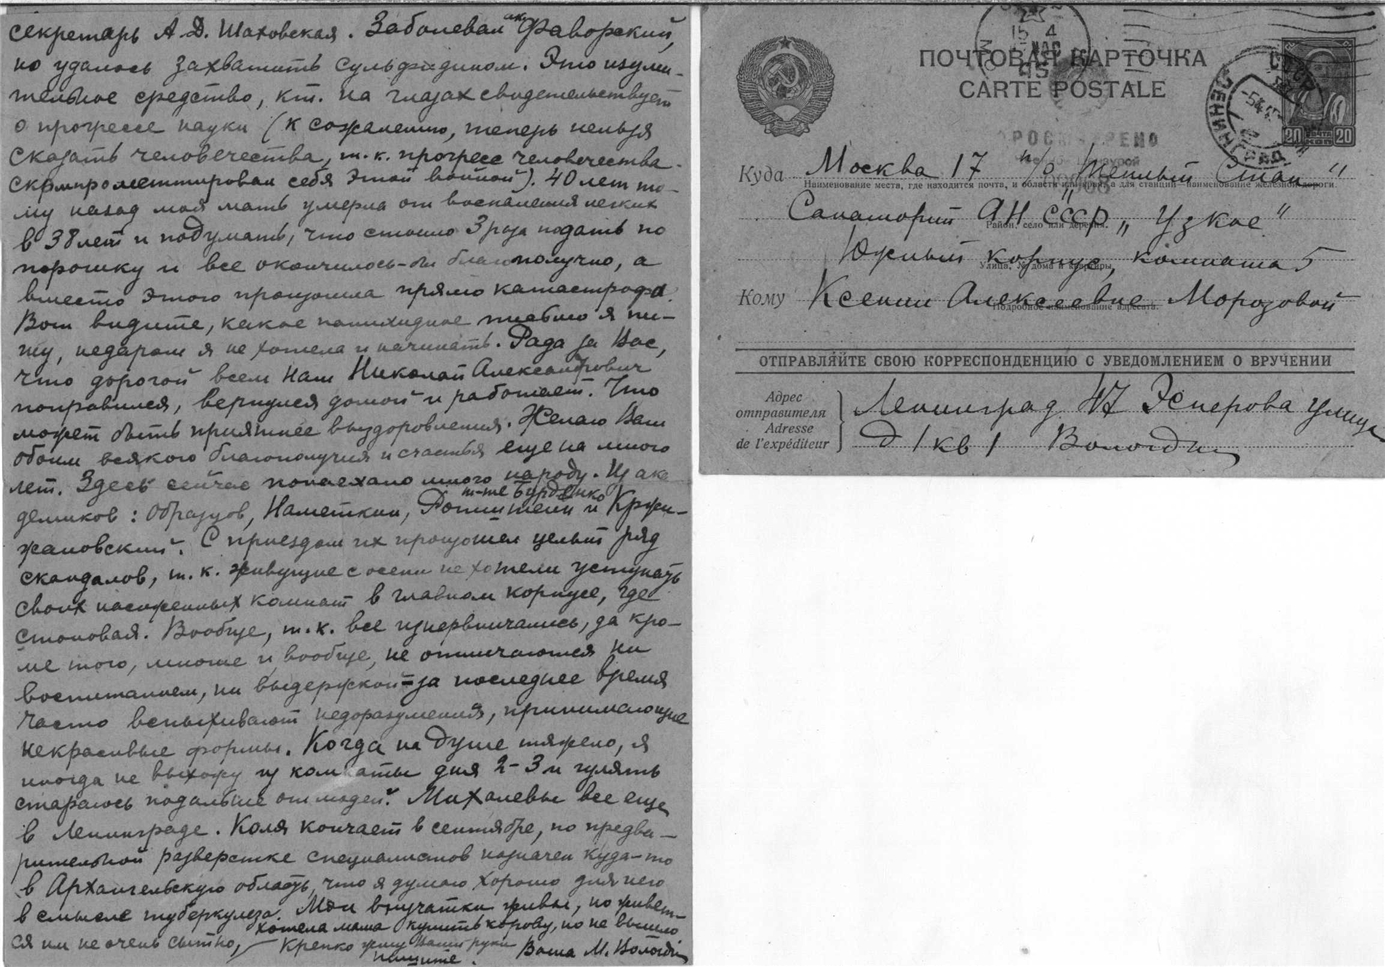 секретарь А.Д. Шаховская. Заболевал ак. Фаворский,
но удалось захватить сульфидином. Это изуми-
тельное средство, кт. на глазах свидетельствует
о прогрессе науки (к сожалению, теперь нельзя
сказать человечества, т.к. прогресс человечества
скомпрометтировал себя этой войной). 40 лет то-
му назад моя мать умерла от воспаления легких
в 38 лет и подумать, что стоило 3 раза подать по
порошку и все окончилось-бы благополучно, а
вместо этого произошла прямо катастрофа.
Вот видите, какое панихидное письмо я пи-
шу, недаром я не хотела и начинать. Рада за Вас,
что дорогой всем нам Николай Александрович
поправился, вернулся домой и работает. Что
может быть приятнее выздоровления. Желаю Вам
обоим всякого благополучия и счастья еще на много
лет. Здесь сейчас понаехало много народу. Из ака-
демиков: Образцов, Наметкин, т-те Бурденко и Кржи-
жановский. С приездом их произошел целый ряд
скандалов, т.к. живущие с осени не хотели уступать
своих насиженных комнат в главном корпусе, где
столовая. Вообще, т.к. все изнервничались, да кро-
ме того, многие и вообще, не отличаются ни
воспитанием, ни выдержкой - за последнее время
часто вспыхивают недоразумения, принимающие
некрасивые формы. Когда на душе тяжело, я
иногда не выхожу из комнаты дня 2-3 и гулять
стараюсь подальше от людей. Михалевы все еще
в Ленинграде. Коля кончает в сентябре, по предва-
рительной разверстке специалистов назначен куда-то
в Архангельскую область, что я думаю хорошо для него
в смысле туберкулеза. Мои внучатки живы, но живет-
ся им не очень сытно, хотела мама купить корову, но не вышло
Крепко жму Ваши руки
пишите. Ваша М. Вологдин
ПОЧТОВАЯ КАРТОЧКА
CARTE POSTALE
СССР
ЛЕНИНГРАД
20 20
КОП
Куда Москва 17 п/о "Теплый Стан"
Наименование места, где находится почта, и области или края, а для станций наименование железной дороги
Санаторий АН СССР "Узкое"
Район, село или деревня
Южный корпус, комната 5
Улица, № дома и квартиры
Кому Ксении Алексеевне Морозовой
Подробное наименование адресата
ОТПРАВЛЯЙТЕ СВОЮ КОРРЕСПОНДЕНЦИЮ С УВЕДОМЛЕНИЕМ О ВРУЧЕНИИ
Адрес отправителя
Adresse de l'expéditeur
Ленинград 47 Эсперова улица
д 1 кв 1 Вологдин